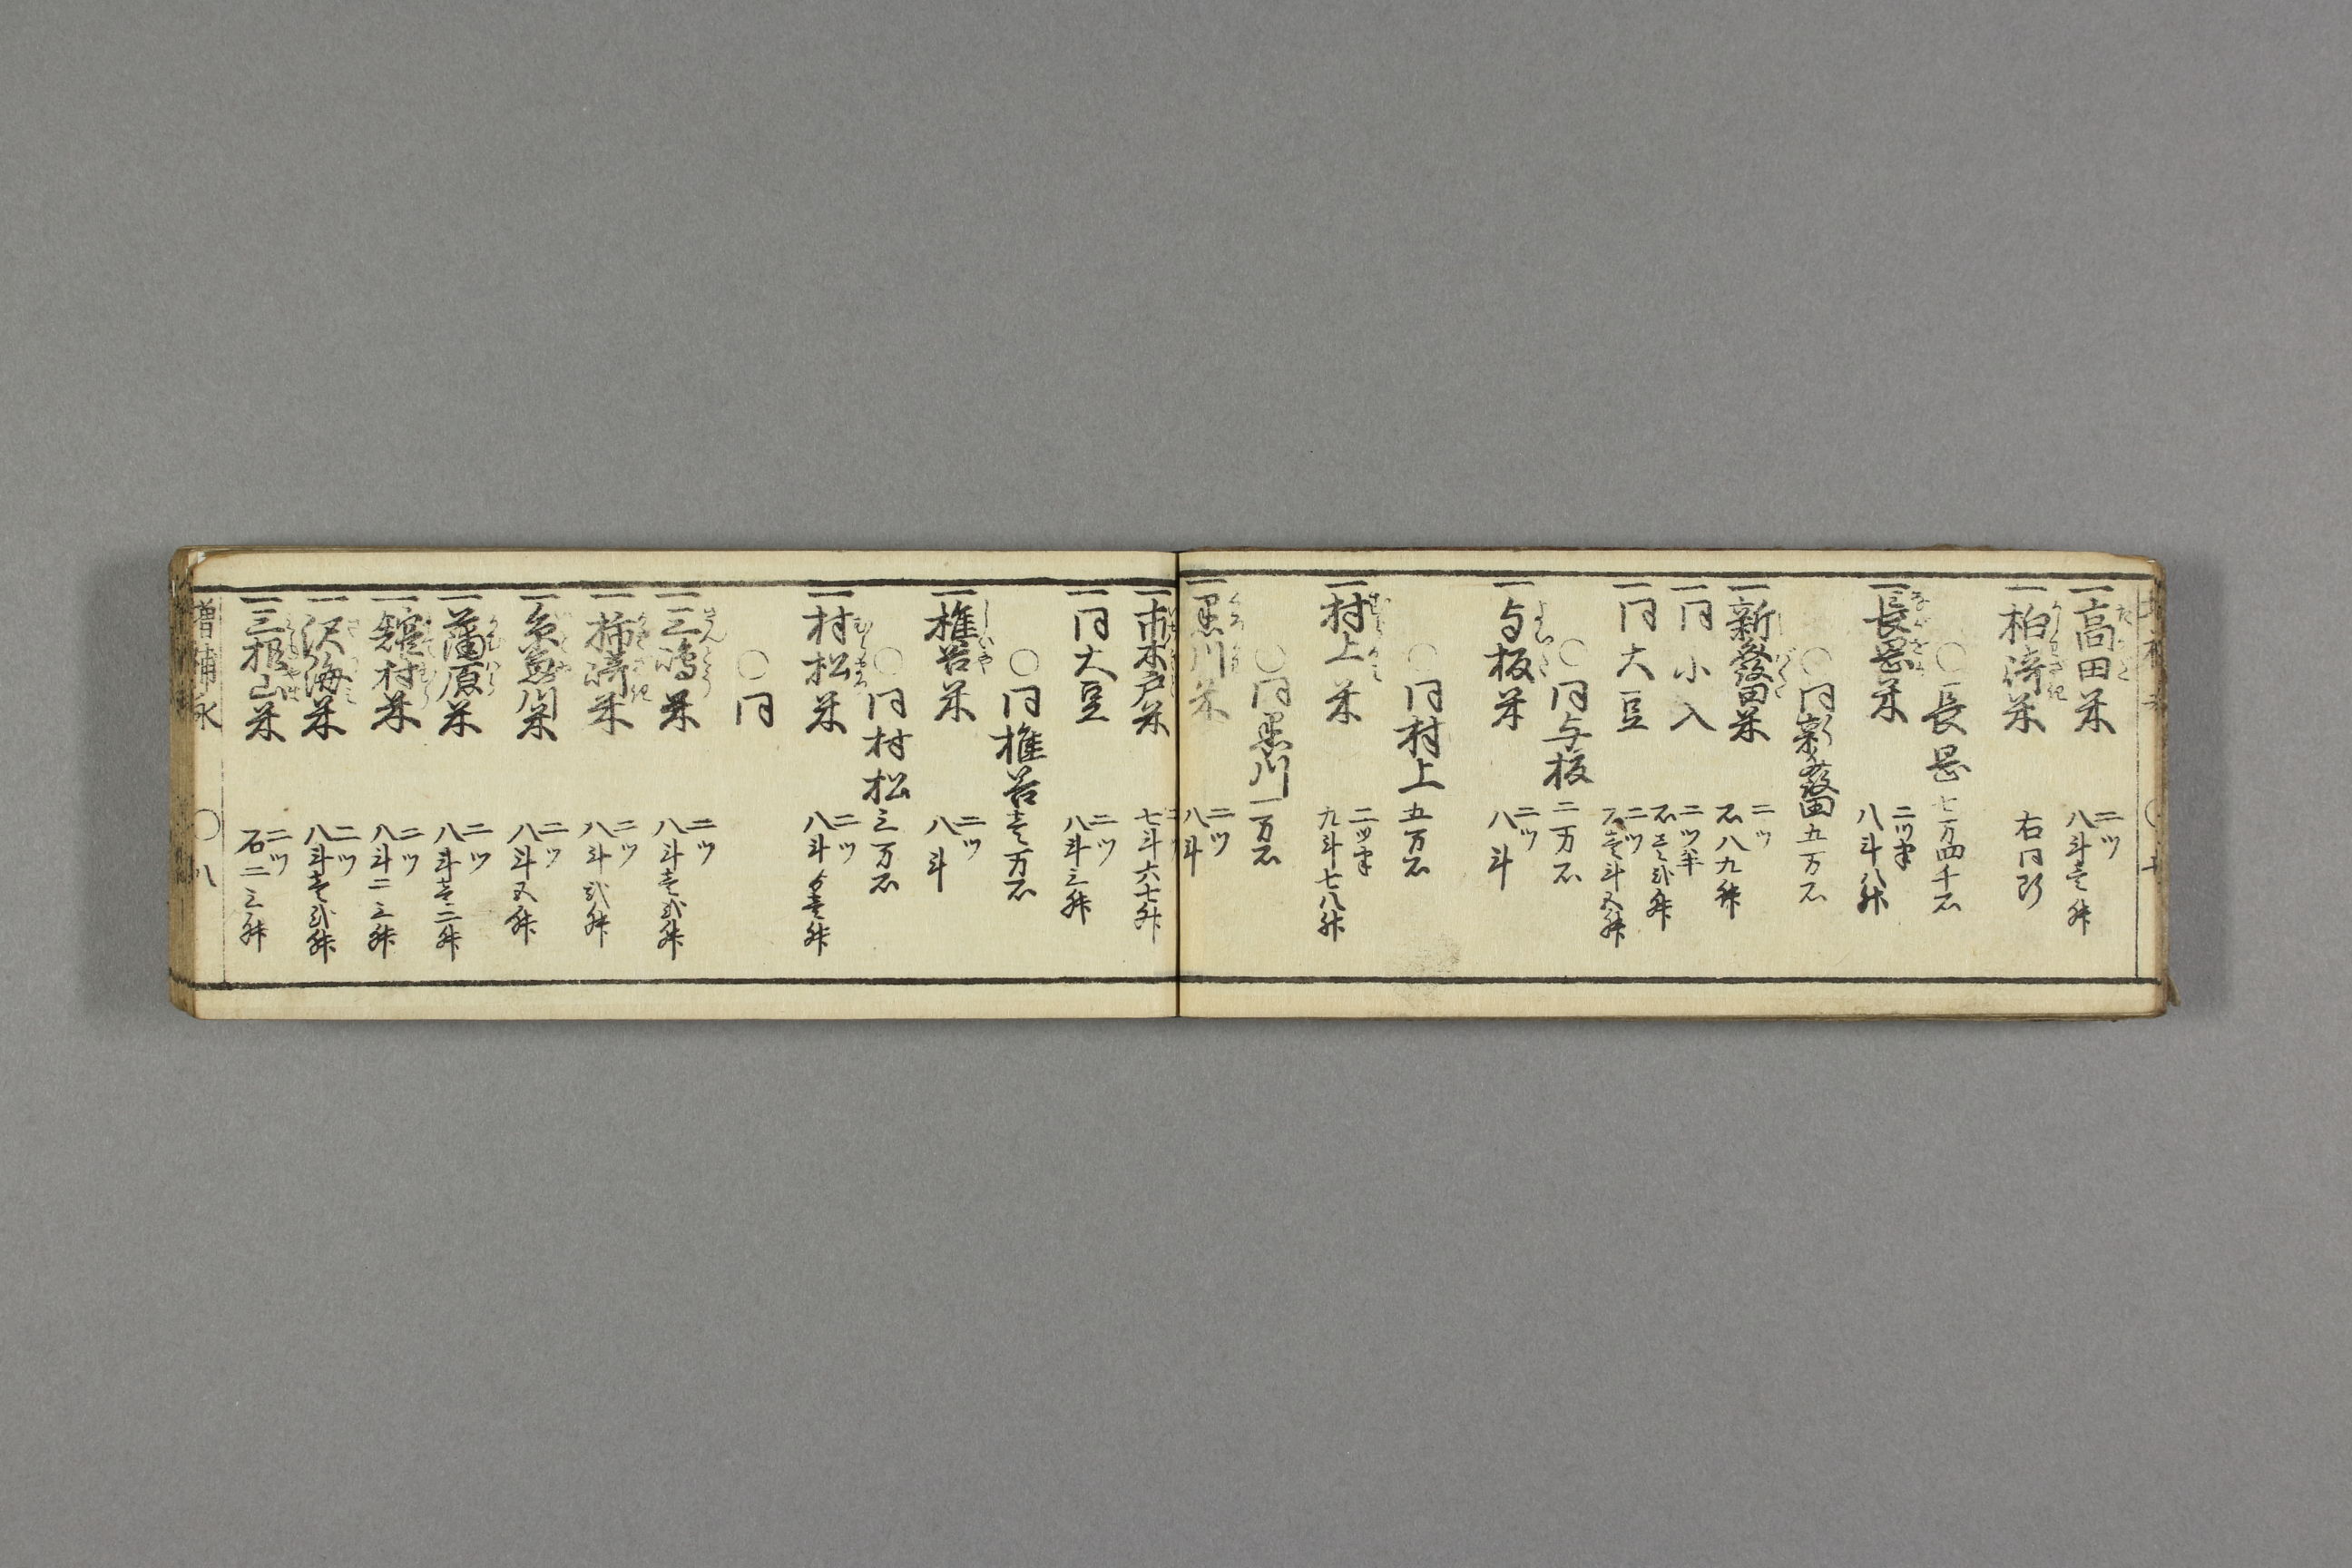 一高田米 二ツ 八斗壱升
一柏崎米 右同断
〇長岡 七万四千石
一長岡米 二ツ半 八斗八升
〇同新發田 五万石
一新發田米 二ツ 石八九升
一同小入 二ツ半 石壱弐升
一同大豆 二ツ 石壱斗五升
〇同与板 二万石
一与板米 二ツ 八斗
〇同村上 五万石
一村上米 二ツ半 九斗七八升
〇同黒川 一万石
一黒川米 二ツ 八斗
一市木戸米 七斗六七升
一同大豆 二ツ 八斗三升
〇同椎谷 壱万石
一椎谷米 二ツ 八斗
〇同村松 三万石
一村松米 二ツ 八斗壱升
〇同
一三嶋米 二ツ 八斗壱弐升
一柿崎米 二ツ 八斗弐升
一糸魚川米 二ツ 八斗五升
一蒲原米 二ツ 八斗壱二升
一舘村米 二ツ 八斗二三升
一沢海米 二ツ 八斗壱弐升
一三根山米 二ツ 石二三升
増補永 〇八